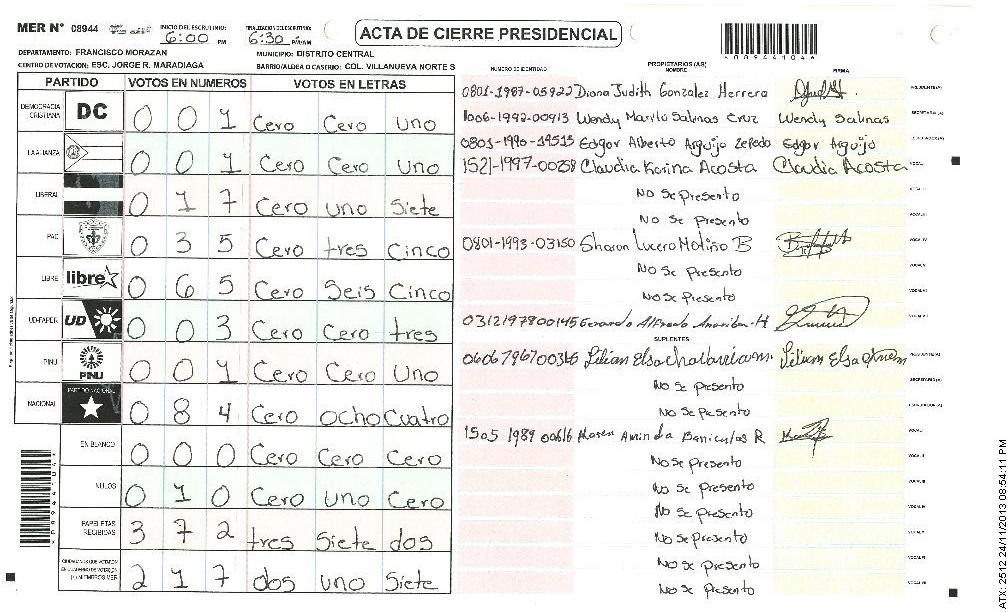 MER Nº 08944 INICIO DEL ESCRUTINIO: 6:00 PM FINALIZACION DEL ESCRUTINIO: 6:30 PM/AM
ACTA DE CIERRE PRESIDENCIAL
*089441044*
DEPARTAMENTO: FRANCISCO MORAZAN MUNICIPIO: DISTRITO CENTRAL
CENTRO DE VOTACION: ESC. JORGE R. MARADIAGA BARRIO/ALDEA O CASERIO: COL. VILLANUEVA NORTE S
PARTIDO VOTOS EN NUMEROS VOTOS EN LETRAS
DEMOCRACIA CRISTIANA DC 0 0 1 Cero Cero Uno
LA ALIANZA 0 0 1 Cero Cero Uno
LIBERAL 0 1 7 Cero uno Siete
PAC 0 3 5 Cero tres Cinco
LIBRE libre 0 6 5 Cero Seis Cinco
UD-FAPER UD 0 0 3 Cero Cero tres
PINU PINU 0 0 1 Cero Cero Uno
NACIONAL PARTIDO NACIONAL 0 8 4 Cero Ocho Cuatro
EN BLANCO 0 0 0 Cero Cero Cero
NULOS 0 1 0 Cero uno Cero
PAPELETAS RECIBIDAS 3 7 2 tres Siete dos
CIUDADANOS QUE VOTARON 2 1 7 dos uno Siete
NUMERO DE IDENTIDAD PROPIETARIOS (AS) NOMBRE FIRMA
0801-1987-05922 Diana Judith Gonzalez Herrera PRESIDENTE(A)
1006-1992-00913 Wendy Marilu Salinas Cruz Wendy Salinas SECRETARIO(A)
0801-1995-19515 Edgar Alberto Arguijo Zepeda Edgar Arguijo ESCRUTADOR(A)
1521-1997-00258 Claudia Karina Acosta Claudia Acosta VOCAL I
No se presento
No se presento
0801-1993-03150 Sharon Lucero Motiño B
No se presento
No se presento
0312197800145 Gerardo Alfredo
SUPLENTES
0606796700365 Lilian Elsa PRESIDENTE(A)
No se presento SECRETARIO(A)
No se presento ESCRUTADOR(A)
1505 1989 00616 Karen Aminda R
No se presento
No se presento
No se presento
No se presento
No se presento
No se presento
*089441044*
ATX-2512 24/11/2013 08:54:11 PM